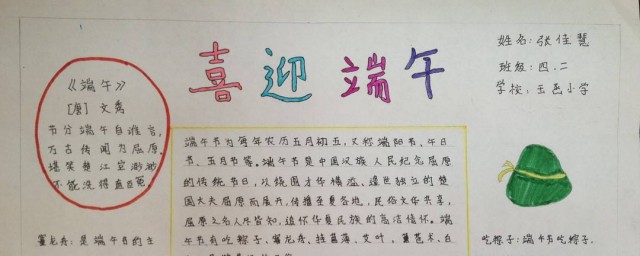 喜迎端午
姓名：张佳慧
班级：四.二
学校：玉邑小学
《端午》
[唐] 文秀
节分端午自谁言，
万古传闻为屈原。
堪笑楚江空渺渺，
不能洗得直臣冤。
端午节为每年农历五月初五，又称端阳节、午日
节、五月节等。端午节是中国汉族人民纪念屈原
的传统节日，以
才华横溢、遗世独立的楚
国大夫屈原而展开，传播至华夏各地，民俗文化共享，
屈原之名人尽皆知，追怀华夏民族的高洁情怀。端
午节有吃粽子，赛龙舟、挂菖蒲、艾叶、薰苍术、白
赛龙舟：是端午节的主
吃粽子：端午节吃粽子，